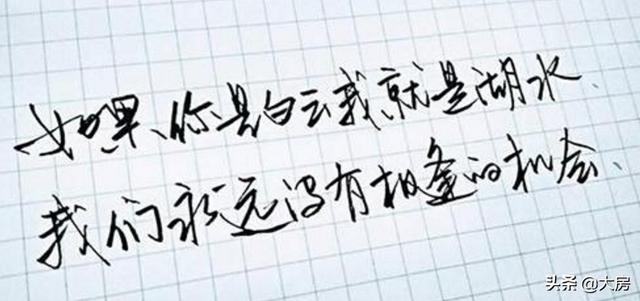 如果、你是白云我就是湖水、
我们永远没有相逢的机会、
头条 @大房